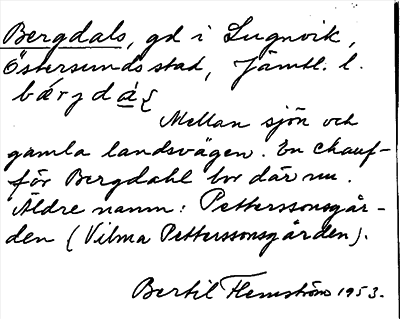 Bergdals, gd i Lugnvik,
Östersunds stad, Jämtl. l.
bárgdà
Mellan sjön och
gamla landsvägen. En chauf-
för Bergdahl bor där nu.
Äldre namn: Petterssonsgår-
den (Vilma Petterssonsgården).
Bertil Flemström 1953.